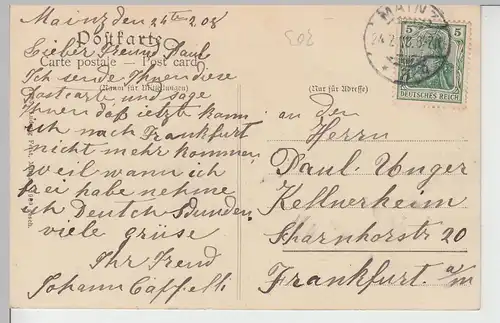 Mainz den 24ten 2.08
Postkarte
Carte postale — Post card
(Raum für Mitteilungen)
Lieber Freund Paul
Ich sende Ihnen diese
Postcarte und sage
Ihnen daß jetzt kann
ich nach Frankfurt
nicht mehr kommen
weil wann ich
frei habe nehme
ich Deutch Stunden
viele grüse
Ihr Freud
Johann
502
MAINZ
5
5
DEUTSCHES REICH
(Nur für Adresse)
an den
Herrn
Paul Unger
Kellnerheim
Scharnhorstr 20
Frankfurt a/m